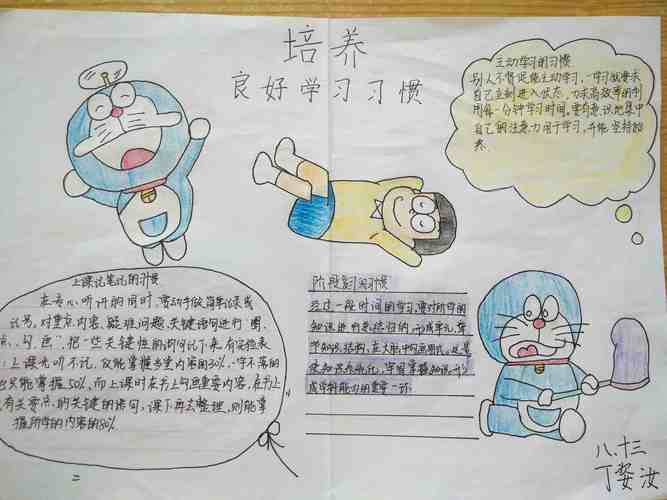 培养
良好学习习惯
主动学习的习惯
别人不督促能主动学习，一学习就要求
自己立刻进入状态，力求高效率的利
用每一分钟学习时间。要有意识地集中
自己的注意力用于学习，并能坚持始
终.
上课记笔记的习惯
在专心听讲的同时，要动手做简单记录或
记号，对重点内容、疑难问题、关键语句进行"圈、
点、勾、画"，把一些关键性的词句记下来.有实验表
：上课光听不记，仅能掌握当堂内容的30%，一字不落的
也只能掌握50%，而上课时在书上勾画重要内容，在书上
有关要点的关键的语句，课下再去整理，则能掌
握所学的内容的80%
阶段复习的习惯
经过一段时间的学习，要对所学的
知识进行总结归纳，形成单元、章
节知识结构，在大脑中勾画图式，这是
使知识系统化，牢固掌握知识，形
成学科能力的重要一环.
八、十三
丁
汝
二